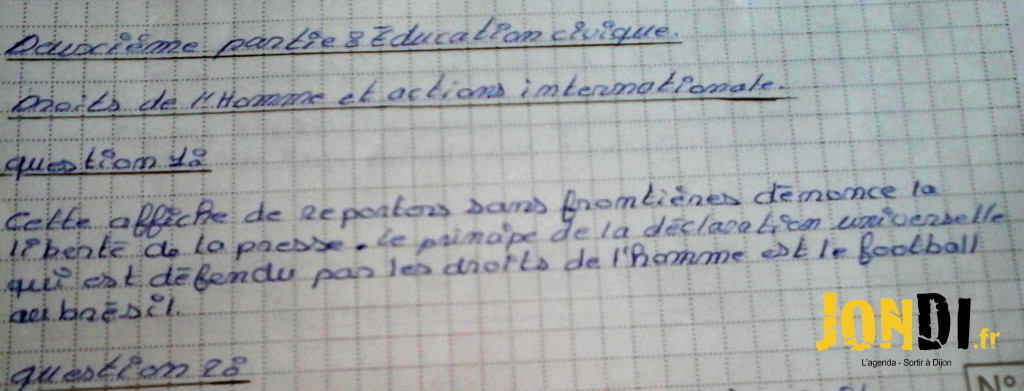 Deuxième partie : Education civique.
Droits de l'Homme et actions internationale.
question 1:
Cette affiche de Reporters sans frontières dénonce la
liberté de la presse. Le principe de la déclaration universelle
qui est défendu par les droits de l'homme est le football
au brésil.
question 2:
JONDI.fr
L'agenda - Sortir à Dijon
N°